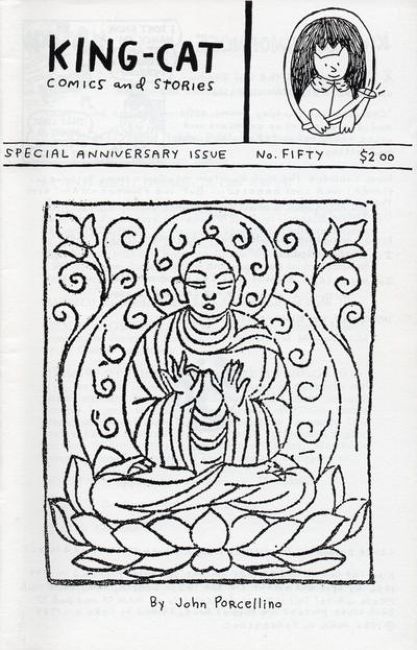 KING-CAT
COMICS and STORIES
SPECIAL ANNIVERSARY ISSUE No. FIFTY $2 00
By John Porcellino